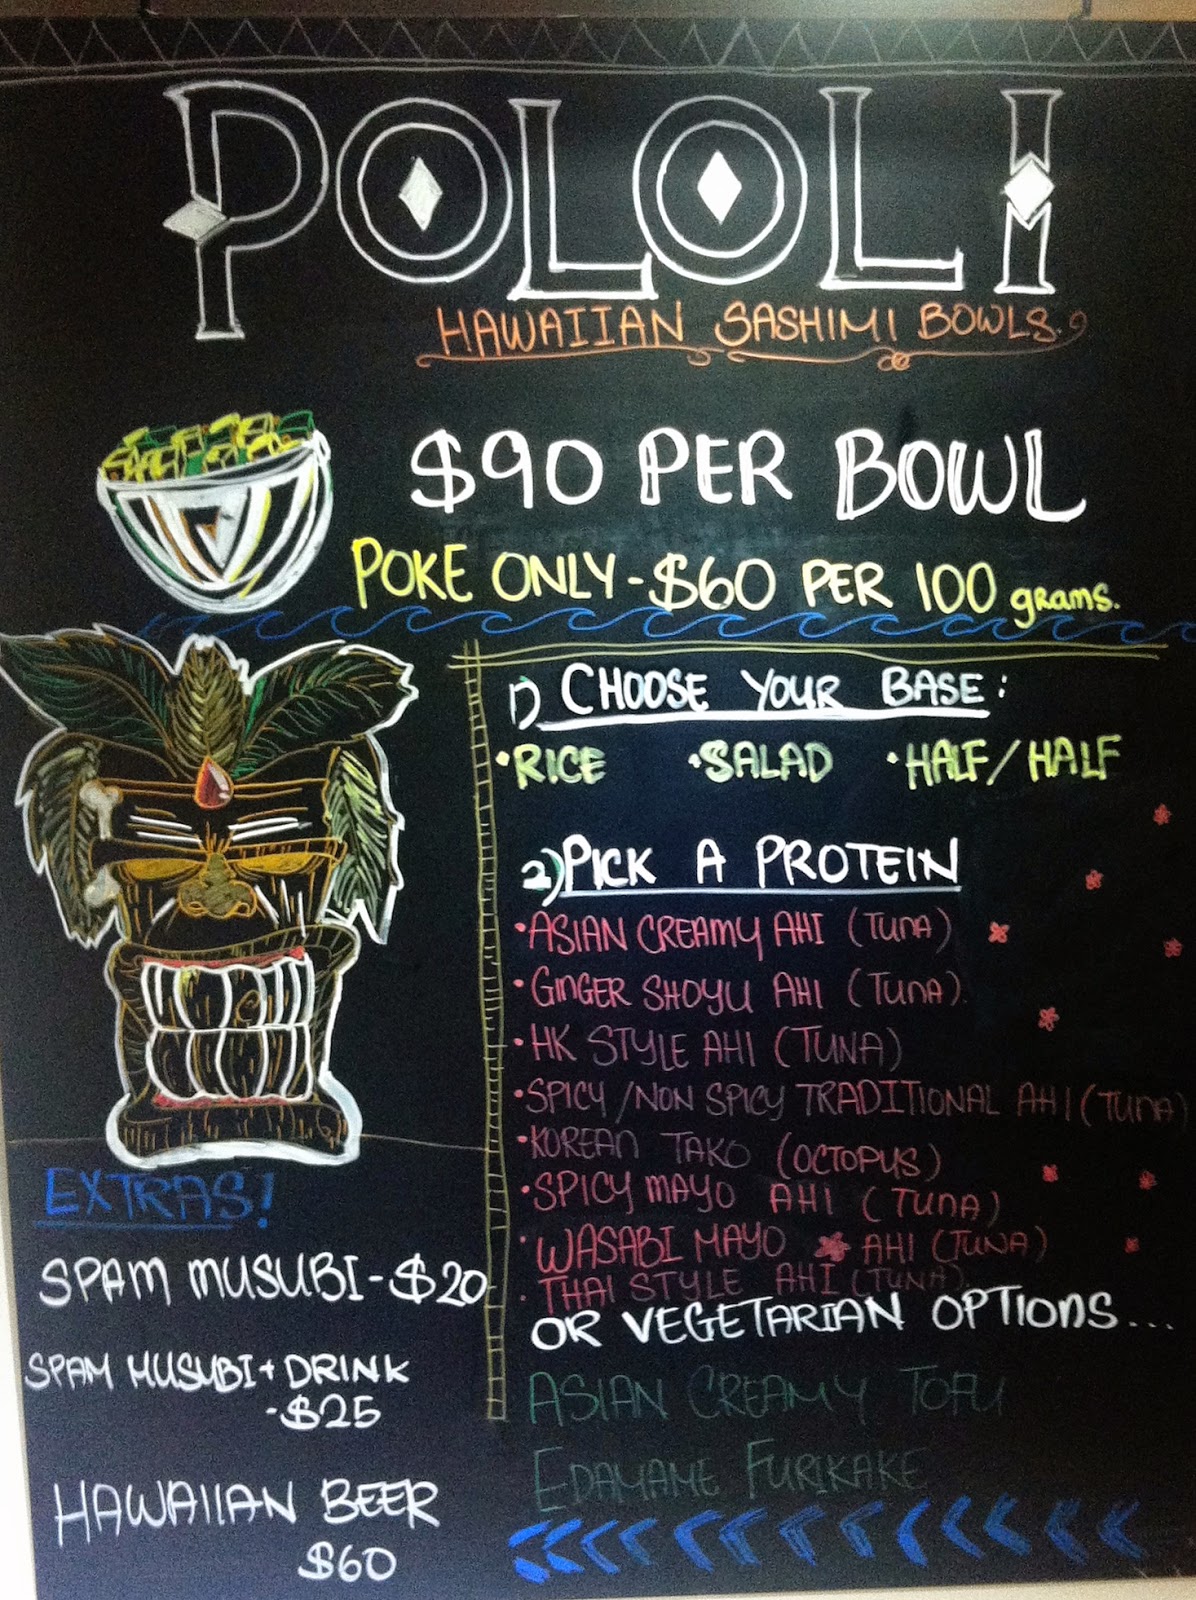 POLOLI
HAWAIIAN SASHIMI BOWLS.
$90 PER BOWL
POKE ONLY - $60 PER 100 grams.
1) CHOOSE YOUR BASE:
• RICE • SALAD • HALF/HALF
2) PICK A PROTEIN
• ASIAN CREAMY AHI (TUNA)
• GINGER SHOYU AHI (TUNA).
• HK STYLE AHI (TUNA)
• SPICY/NON SPICY TRADITIONAL AHI (TUNA)
• KOREAN TAKO (OCTOPUS)
• SPICY MAYO AHI (TUNA)
• WASABI MAYO AHI (TUNA)
• THAI STYLE AHI (TUNA)
OR VEGETARIAN OPTIONS...
ASIAN CREAMY TOFU
EDAMAME FURIKAKE
EXTRAS!
SPAM MUSUBI - $20
SPAM MUSUBI + DRINK
- $25
HAWAIIAN BEER
$60